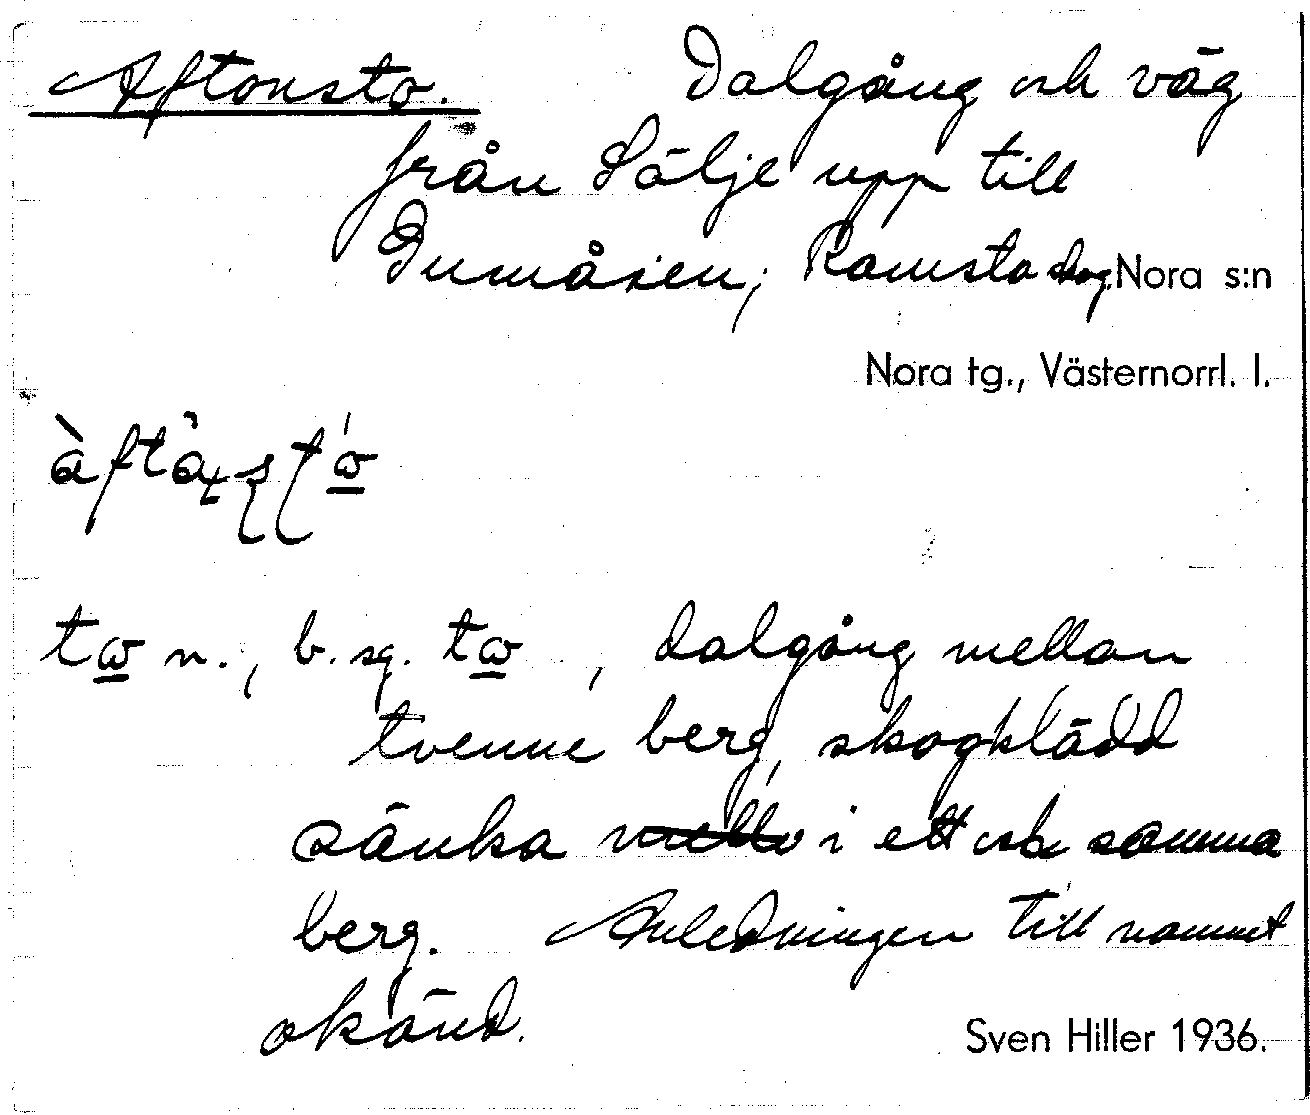 Aftonsto. Dalgång och väg
från Sälje upp till
Dumåsen, Ramsta skog. Nora s:n
Nora tg., Västernorrl. l.
n., b. sg. , dalgång mellan
tvenne berg, skogklädd
sänka i ett och samma
berg. Anledningen till namnet
okänd.
Sven Hiller 1936.